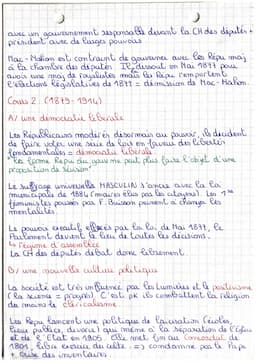 avec un gouvernement responsable devant la CH des députés +
président avec de larges pouvoirs
Mac-Mahon est contraint de gouverner avec les Répu maj
à la chambre des députés. Il dissout en Mai 1877 pour
avoir une maj de royalistes mais les Répu remportent
l'élections législatives de 1877 = démission de Mac-Mahon.
Cours 2 : (1879-1914)
A/ une démocratie libérale
Les Républicains modérés désormais au pouvoir, ils décident
de faire voter une série de lois en faveur des libertés
fondamentales = démocratie libérale
"la forme Répu du gouv ne peut plus faire l'objet d'une
proposition de révision"
Le suffrage universelle MASCULIN s'ancre avec la loi
municipale de 1884 (maires élus par les citoyens). Les 1ères
féministes poussés par F. Buisson peinent à changer les
mentalités.
Le pouvoir exécutif effacé par la loi de Mai 1877, le
Parlement devient le lieu de toutes les décisions.
↳ régime d'assemblée
La CH des députés débat donc librement.
B/ une nouvelle culture politique
La société est très influencé par les Lumières et le positivisme
(la science = progrès). C'est pk ils combattent la religion
de manière cléricalisme.
Les Répu lancent une politique de laïcisation (écoles,
lieux publics, divorce) qui mène à la séparation de l'Église
et de l'État en 1905. Elle met fin au Concordat de
1801, libre exercice du culte => condamnée par le Pape
+ crise des inventaires.